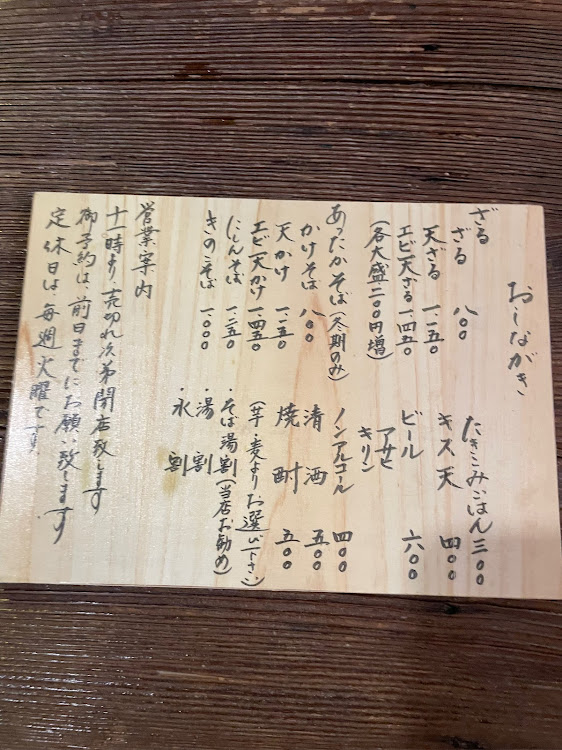 おしながき
ざる
ざる 八〇〇
天ざる 一.一五〇
エビ天ざる 一.四五〇
(各大盛二〇〇円増)
あったかそば(冬期のみ)
かけそば 八〇〇
天かけ 一.一五〇
エビ天かけ 一.四五〇
にしんそば 一.二五〇
きのこそば 一.〇〇〇
たきこみごはん 三〇〇
キス天 四〇〇
ビール 六〇〇
アサヒ
キリン
ノンアルコール 四〇〇
清酒 五〇〇
焼酎 五〇〇
(芋・麦よりお選び下さい)
・そば湯割(当店お勧め)
・湯割
・水割
営業案内
十一時より売切れ次第閉店致します
御予約は、前日までにお願い致します
定休日は毎週火曜です